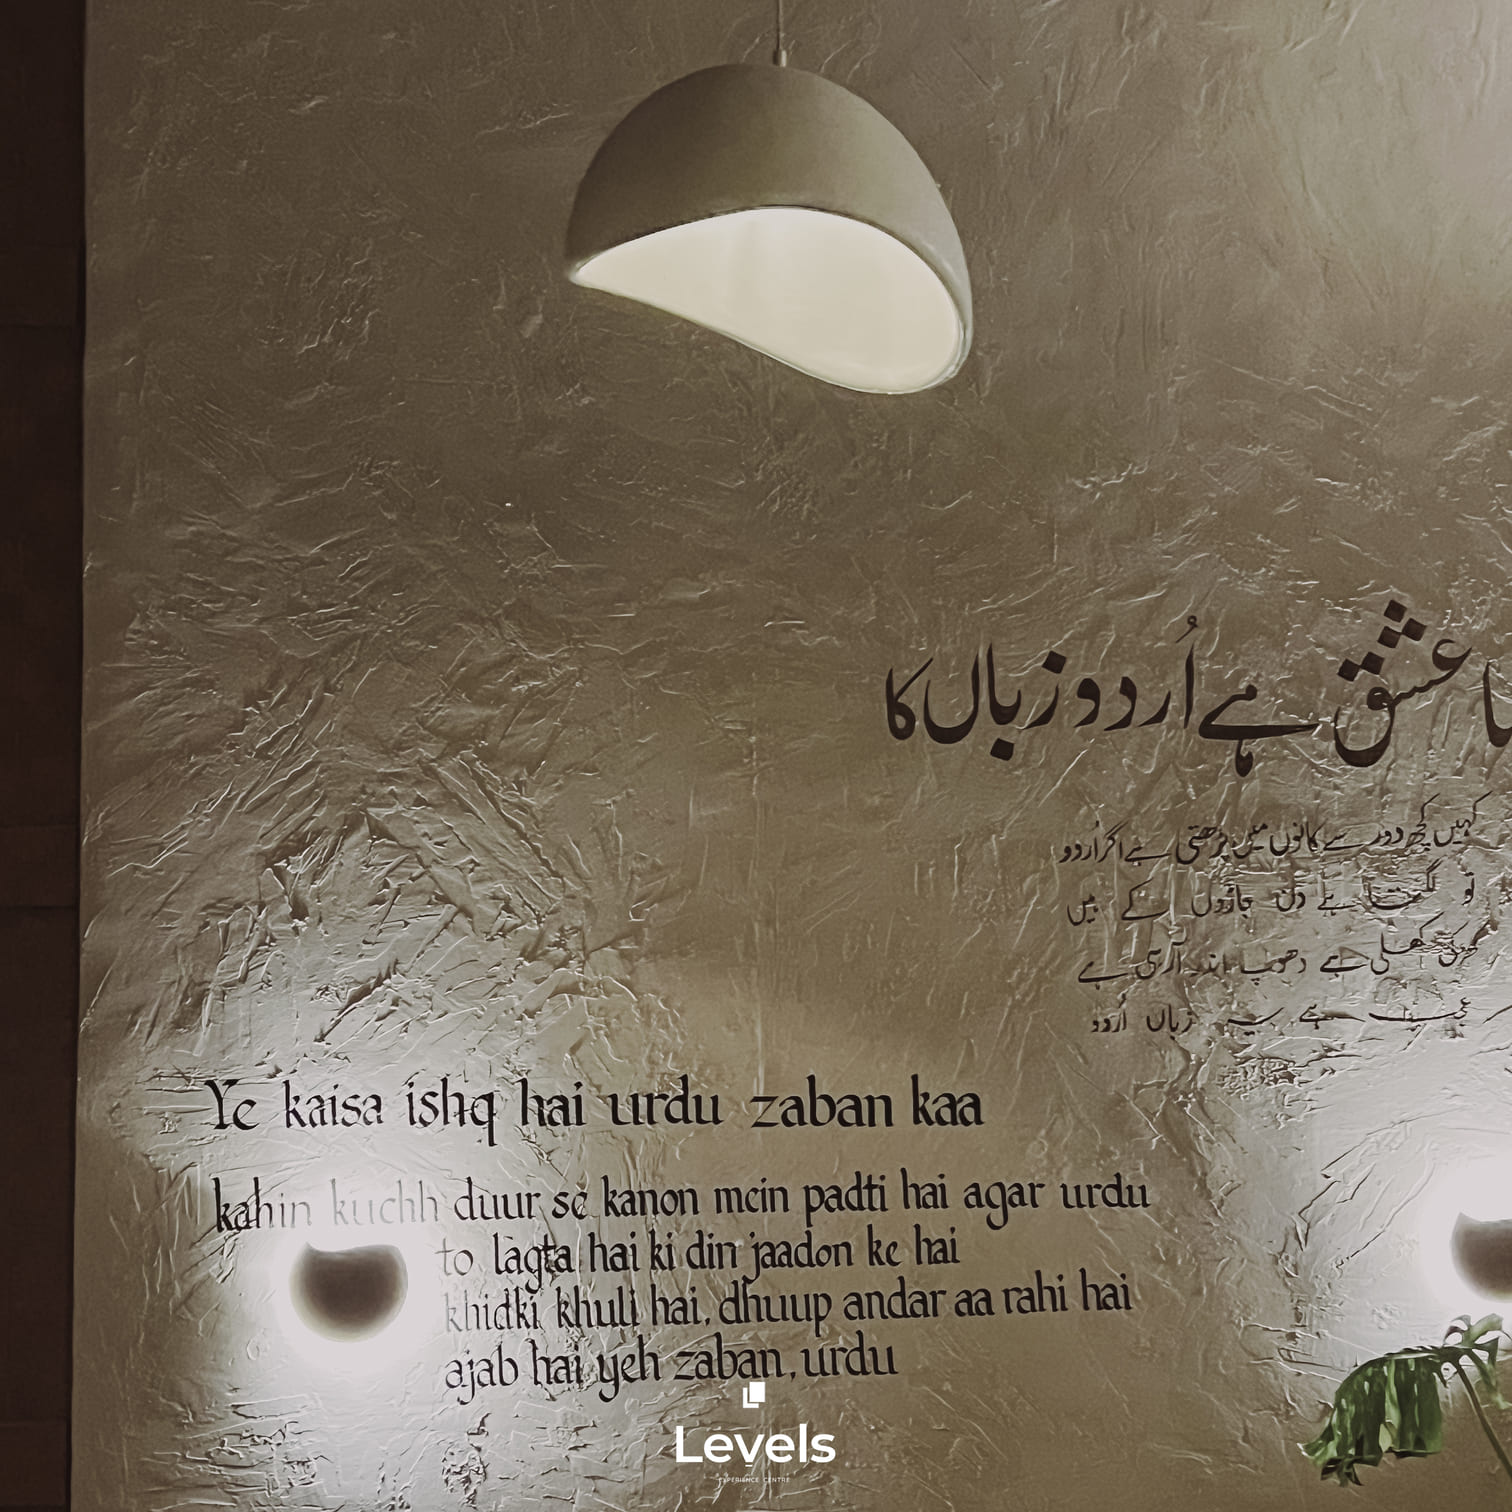 عشق ہے اُردو زباں کا
کہیں کچھ دور سے کانوں میں پڑھتی ہے اگر اُردو
تو لگتا ہے دن جاڑوں کے ہیں
کھڑکی کھلی ہے دھوپ اندر آرہی ہے
عجیب ہے یہ زباں اُردو
Ye kaisa ishq hai urdu zaban kaa
kahin kuchh duur se kanon mein padti hai agar urdu
to lagta hai ki din jaadon ke hai
khidki khuli hai, dhuup andar aa rahi hai
ajab hai yeh zaban, urdu
Levels
EXPERIENCE CENTRE